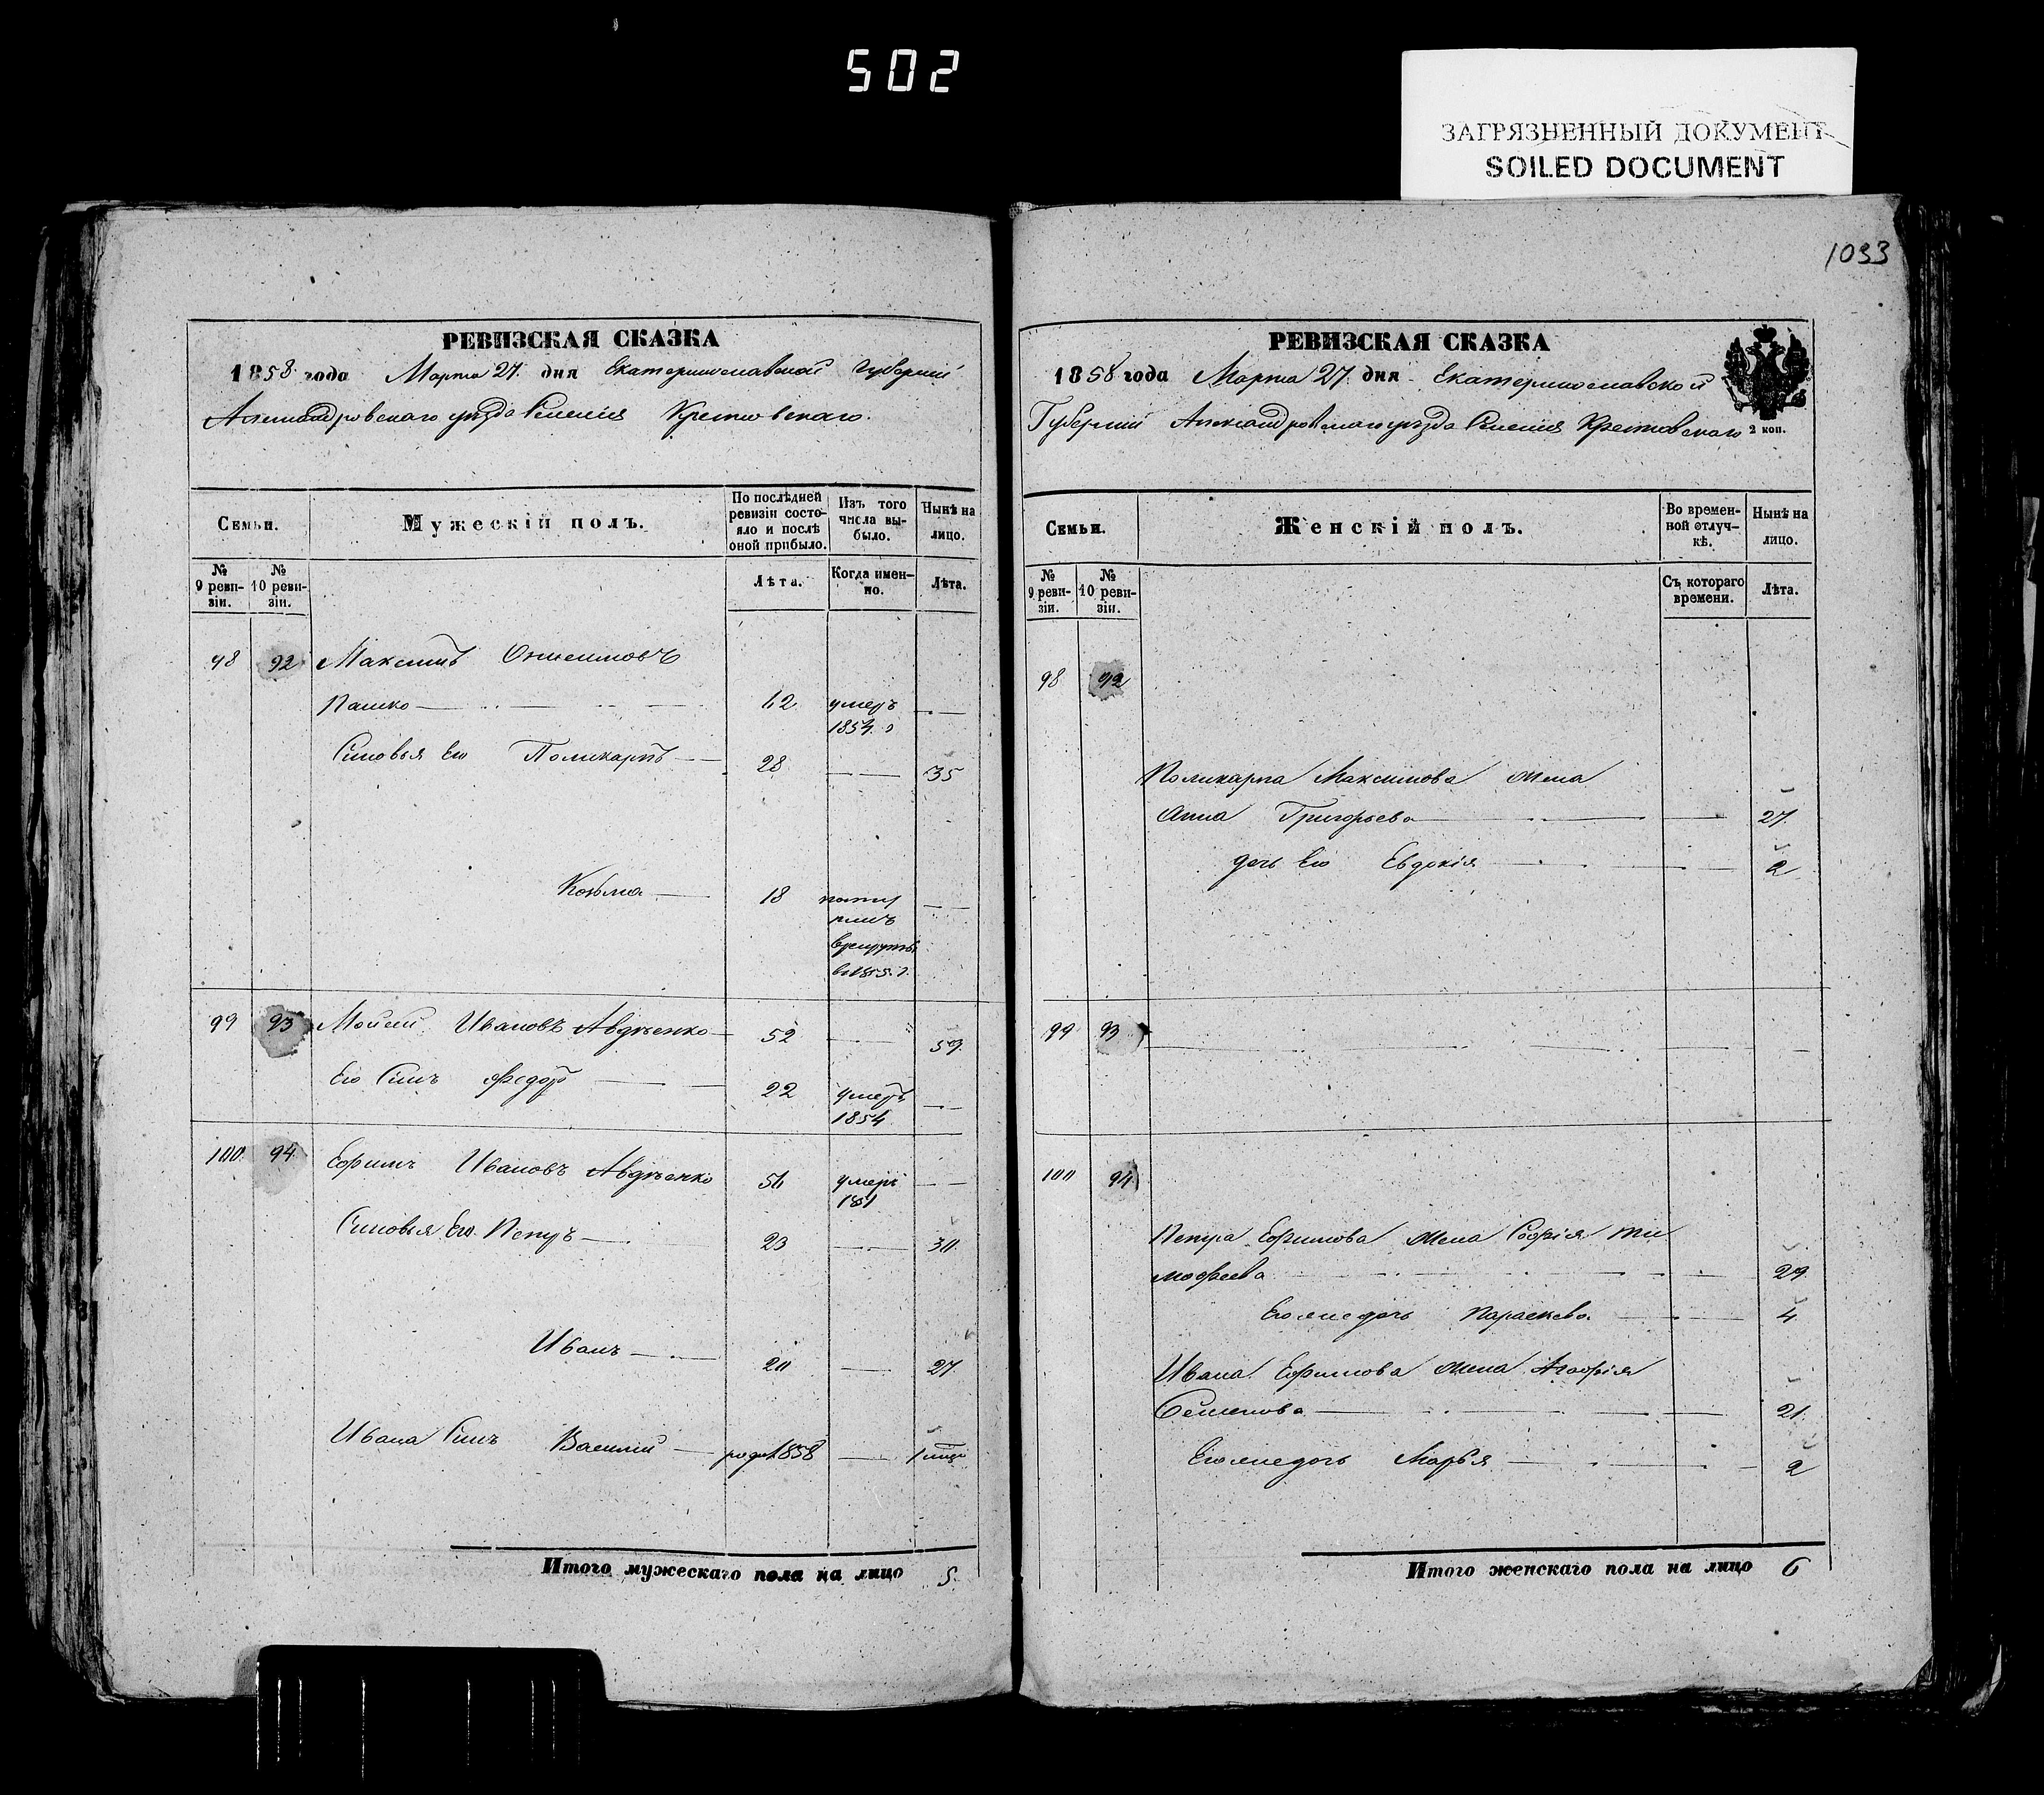 502
ЗАГРЯЗНЕННЫЙ ДОКУМЕНТ
SOILED DOCUMENT
РЕВИЗСКАЯ СКАЗКА
1858 года Марта 27 дня Екатеринославской Губернии
Александровскаго уѣзда Селенія Крестовскаго
Семьи.
Мужескій полъ.
По послѣдней ревизіи состояло и послѣ оной прибыло.
Изъ того числа выбыло.
Нынѣ на лицо.
№ 9 ревизіи.
№ 10 ревизіи.
Лѣта.
Когда именно.
Лѣта.
98 92 Максимъ Онисимовъ
Пашко 62 умеръ
1854
Сыновья Его Поликарпъ 28 35
Козьма 18
в 1855 г.
99 93 Мойсей Ивановъ Авдѣенко 52 59
Его Сынъ Федоръ 22 умеръ
1854
100 94 Ефимъ Ивановъ Авдѣенко умеръ
Сыновья Его Петръ 23 30
Иванъ 20 27
Ивана Сынъ Василий род 1858 1
Итого мужескаго пола на лицо 5
1033
РЕВИЗСКАЯ СКАЗКА
1858 года Марта 27 дня Екатеринославской
Губернии Александровскаго уѣзда Селенія Крестовскаго 2 коп.
Семьи.
Женскій полъ.
Во временной отлучкѣ.
Нынѣ на лицо.
№ 9 ревизіи.
№ 10 ревизіи.
Съ котораго времени.
Лѣта.
98 92
Поликарпа Максимова жена
Анна Григорьева 27
дочь Его Евдокія 2
99 93
100 94
Петра Ефимова жена Софія Ти
мофеева 29
Его же дочь Параскева 4
Ивана Ефимова жена Агафія
Семенова 21
Его же дочь Марья 2
Итого женскаго пола на лицо 6